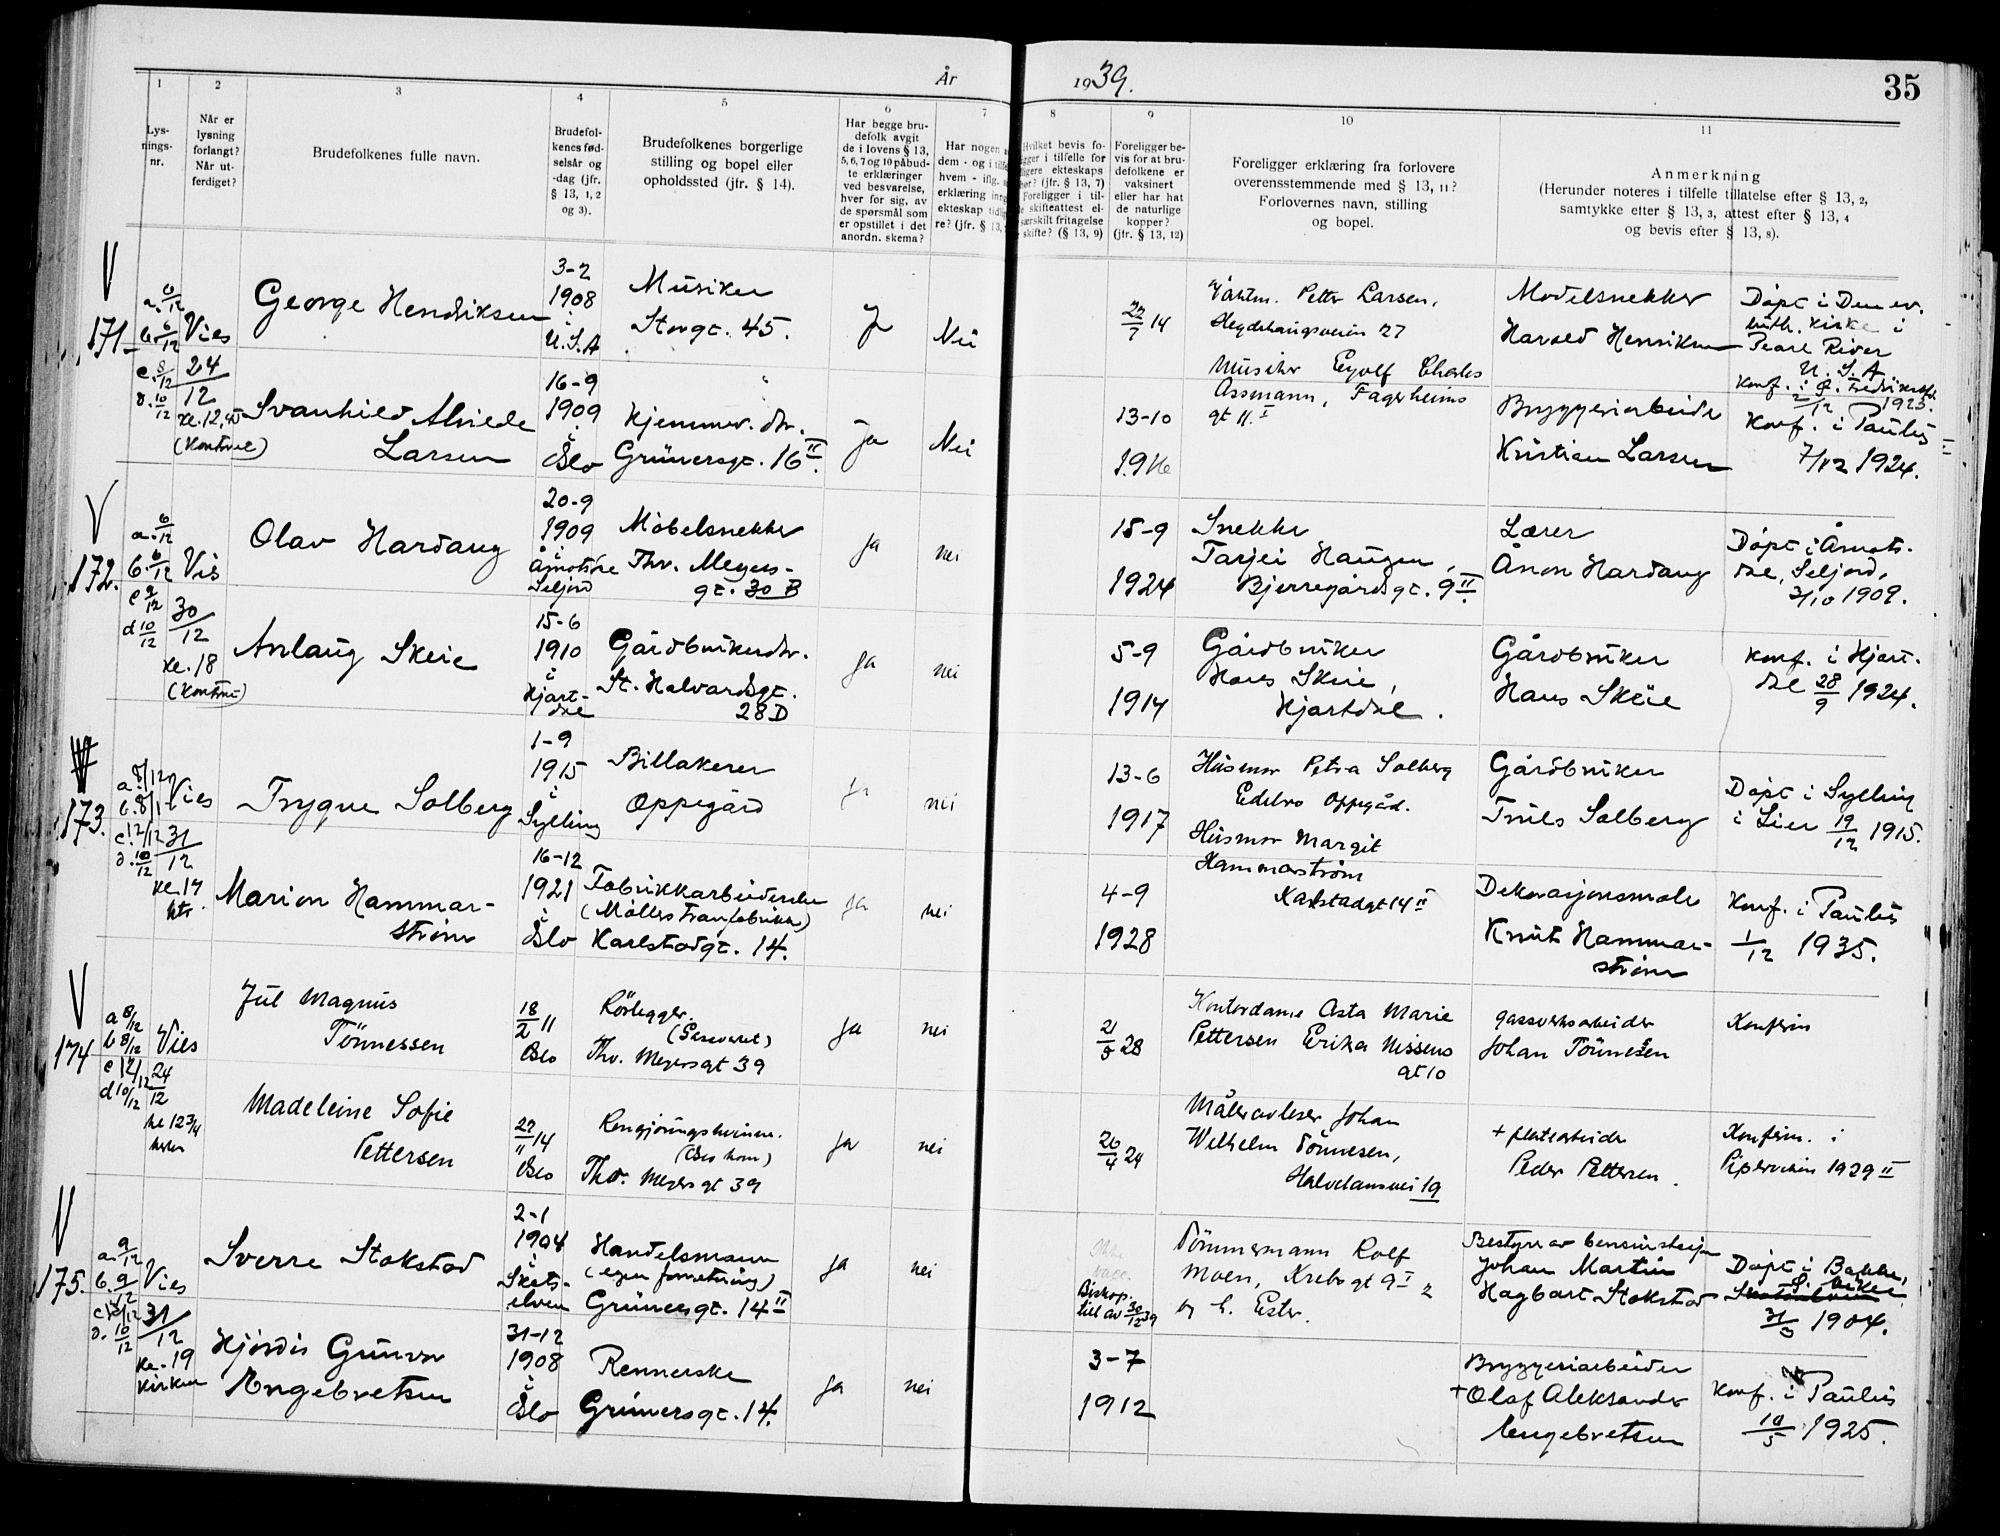 År
1939.
35
1
2
3
4
5
6
7
8
9
10
11
Lys-
nings-
nr.
Når er
lysning
forlangt?
Når ut-
ferdiget?
Brudefolkenes fulle navn.
Brudefol-
kenes fød-
selsår og
-dag (jfr.
§ 13, 1, 2
og 3).
Brudefolkenes borgerlige
stilling og bopel eller
opholdssted (jfr. § 14).
Har begge bru-
defolk avgit
de i lovens § 13,
5, 6, 7 og 10 påbud-
te erklæringer
ved besvarelse,
hver for sig, av
de spørsmål som
er opstillet i det
anordn. skema?
Har nogen
dem - og i
hvem - iflg.
erklæring
ekteskap
re? (jfr. § 13,
Hvilket bevis fo-
i tilfelle for
ekteskaps
(jfr. § 13, 7)
Foreligger i til-
skifteattest el-
særskilt fritagelse
skifte? (§ 13, 9)
Foreligger be-
vis for at bru-
defolkene er
vaksinert
eller har hat
de naturlige
kopper?
(jfr. § 13, 12)
Foreligger erklæring fra forlovere
overensstemmende med § 13, 11?
Forlovernes navn, stilling
og bopel.
Anmerkning
(Herunder noteres i tilfelle tillatelse efter § 13, 2,
samtykke efter § 13, 3, attest efter § 13, 4
og bevis efter § 13, 8).
V
171
a. 6/12
b. 6/12 Vies
c. 8/12 24/12
d. 10/12 kl. 12,45
(Kontoret)
George Hendriksen
3-2
1908
i
U.S.A
Musiker
Storgt. 45.
Ja
Nei
22/7 14
Vaktm. Petter Larsen,
Hegdehaugsveien 27
Musiker Eyolf Charles
Assmann, Fagerheims
gt 11. I
Modelsnekker
Harald Henriksen
Døpt i Den ev.
luth. kirke i
Pearl River
U.S.A
Konf. i Ø. Fredrikstad
2/12 1923.
Svanhild Alvilde
Larsen
16-9
1909
i
Oslo
Hjemmev. dtr.
Grünersgt. 16 II.
Ja
Nei
13-10
1916
Bryggeriarbeider
Kristian Larsen
Konf. i Paulus II
7/12 1924.
V
172.
a. 6/12
b. 6/12 Vis
c 9/12 30/12
d 10/12 kl. 18
(Kontoret)
Olav Hardang
20-9
1909
i
Åmotsdal
Seljord
Møbelsnekker
Thv. Meyers-
gt. 30 B
Ja
nei
15-9
1924
Snekker
Tarjei Haugen,
Bjerregårdsgt. 9 II.
Lærer
Ånon Hardang
Døpt i Åmots-
dal, Seljord,
3/10 1909.
Anlaug Skeie
15-6
1910
i
Hjart-
dal
Gårdbrukerdtr.
St. Halvardsgt.
28 D
Ja
nei
5-9
1914
Gårdbruker
Hans Skeie,
Hjartdal.
Gårdbruker
Hans Skeie
Konf. i Hjart-
dal 28/9 1924.
173.
a. 8/12
b. 8/12 Vies
c. 12/12 31/12
d. 10/12 kl. 17
ktr.
Trygve Solberg
1-9
1915
i
Sylling
Billakerer
Oppegård
Ja
nei
13-6
1917
Husmor Petra Solberg
Edelbo Oppegård.
Husmor Margit
Hammarstrøm
Karlstadgt 14 II
Gårdbruker
Truls Solberg
Døpt i Sylling
i Lier 19/12 1915.
Marion Hammar-
strøm
16-12
1921
i
Oslo
Fabrikkarbeiderske
(Møllers Tranfabrikk)
Karlstadgt. 14.
Ja
nei
4-9
1928
Dekorasjonsmaler
Knut Hammar-
strøm
Konf. i Paulus
1/12 1935.
V
174
a 8/12
b 8/12 Vies
c 12/12 24/12
d 10/12 kl 12 3/4
Jul Magnus
Tönnessen
18/2 11
Oslo
Rørlegger.
(Gassverket)
Thv. Meyersgt 39
Ja
nei
21/5 28
Kontordame Asta Marie
Pettersen Erika Nissens
gt 10
gassverksarbeider
Johan Tönnesen
Konfirm
Madeleine Sofie
Pettersen
27/11 14
Oslo
Rengjøringskvinne.
(Oslo kom)
Thv. Meyers gt 39
Ja
nei
26/4 24
Måleravleser Johan
Wilhelm Tönnesen,
Halvdansvei 19
+ platearbeider
Peder Pettersen.
Konfirm. i
Piperviken 1929 II
V
175.
a. 9/12
b. 9/12 Vies
c 12/12 31/12
d. 10/12 kl. 19
kirken
Sverre Stokstad
2-1
1904
i
Skots-
elven
Handelsmann
(egen forretning)
Grünersgt. 14 II
Ja
nei
Ikke
vacc.
Biskop.
till av 30/12 39
Tömmermann Rolf
Moen, Krebs gt 9 I
Bestyrer av bensinstasjon
Johan Martin
Hagbart Stokstad
Døpt i Bakke,
31/3 1904.
Hjørdis Gunvor
Engebretsen
31-12
1908
i
Oslo
Rennerske
Grünersgt. 14.
Ja
nei
3-7
1912
Bryggeriarbeider
+ Olaf Aleksander
Engebretsen
Konf. i Paulus
10/5 1925.